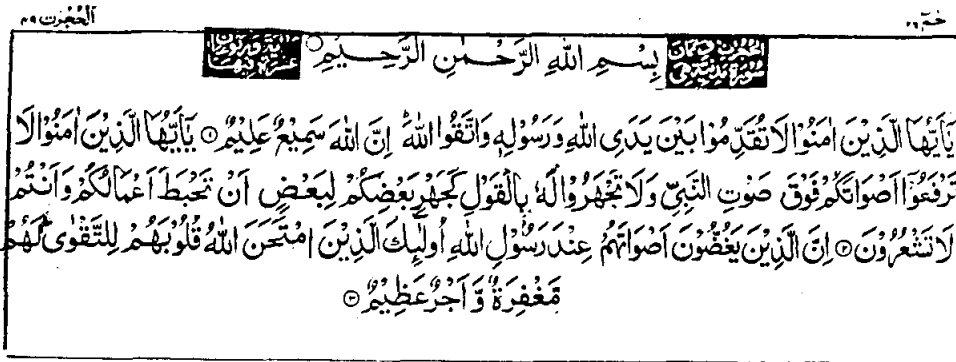 الحُجُرٰت ٤٩
حٰمٓ ٢٦
بِسْمِ اللهِ الرَّحْمٰنِ الرَّحِيْمِ
يٰۤاَيُّهَا الَّذِيْنَ اٰمَنُوْا لَا تُقَدِّمُوْا بَيْنَ يَدَىِ اللهِ وَرَسُوْلِهٖ وَاتَّقُوا اللهَ ؕ اِنَّ اللهَ سَمِيْعٌ عَلِيْمٌ ۝١ يٰۤاَيُّهَا الَّذِيْنَ اٰمَنُوْا لَا
تَرْفَعُوْۤا اَصْوَاتَكُمْ فَوْقَ صَوْتِ النَّبِيِّ وَلَا تَجْهَرُوْا لَهٗ بِالْقَوْلِ كَجَهْرِ بَعْضِكُمْ لِبَعْضٍ اَنْ تَحْبَطَ اَعْمَالُكُمْ وَاَنْتُمْ
لَا تَشْعُرُوْنَ ۝٢ اِنَّ الَّذِيْنَ يَغُضُّوْنَ اَصْوَاتَهُمْ عِنْدَ رَسُوْلِ اللهِ اُولٰٓئِكَ الَّذِيْنَ امْتَحَنَ اللهُ قُلُوْبَهُمْ لِلتَّقْوٰى ؕ لَهُمْ
مَّغْفِرَةٌ وَّ اَجْرٌ عَظِيْمٌ ۝٣